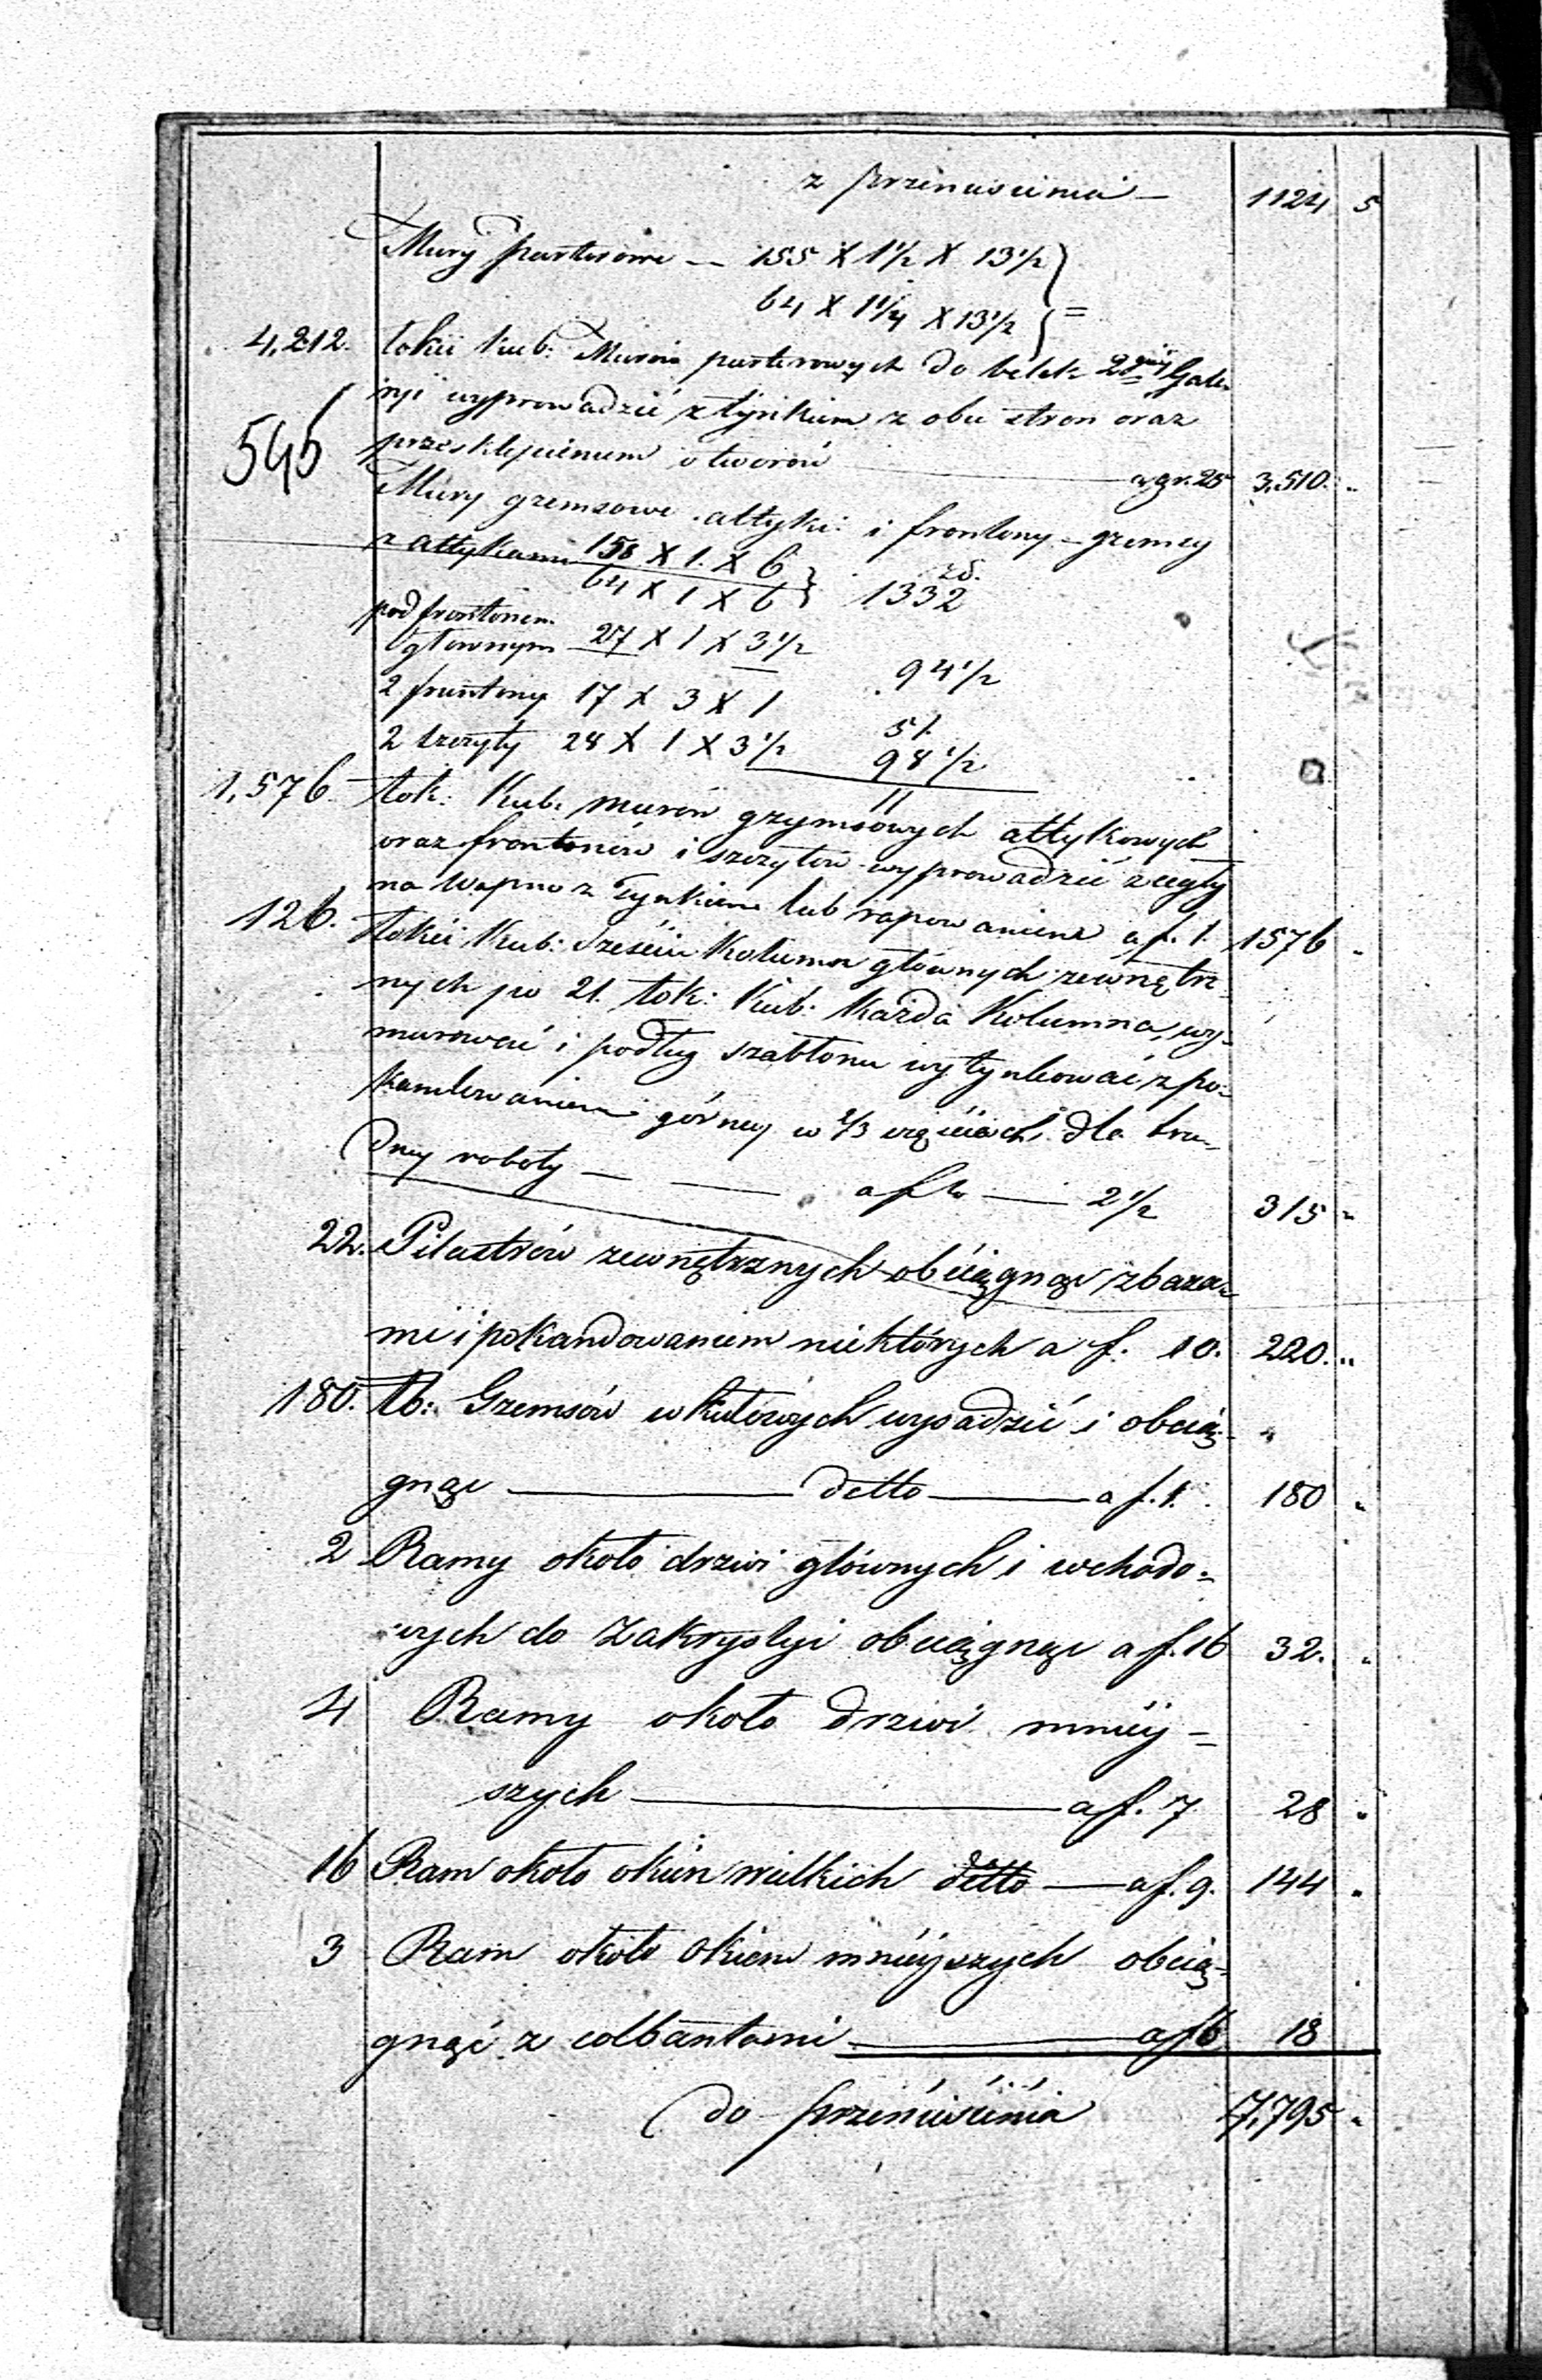 z przeniesienia — 1124 5
Mury parterowe — 155 X 1½ X 13½
64 X 1¼ X 13½ } =
4,212. łokci kub: Murów parterowych do belek 2giéj Gale-
ryi wyprowadzić z tynkiem z obu stron oraz
545 przesklepieniem otworów — a gr. 25 3,510. "
Mury gzemsowe attyki i frontony — gzemsy
z attykami 158 X 1. X 6
64 X 1 X 6 } 1332
pod frontonem
głównym 27 X 1 X 3½ 94½
2 frontony 17 X 3 X 1 51.
2 szczyty 28 X 1 X 3½ 98½
1,576. łok: Kub: murów gzymsowych attykowych
oraz frontonów i szczytów wyprowadzić z cegły
na wapno z Tynkiem lub rapowaniem a f. 1. 1576 "
126. łokci Kub: Sześciu Kolumn głównych zewnętrz-
nych po 21. łok: Kub: każda Kolumna, wy-
murować i podług szablonu wytynkować z po-
kandowaniem górnej w 2/3 częściach dla tru-
dnéy roboty — — a fl — 2½ 315 "
22. Pilastrów zewnętrznych obciągnąć z baza-
mi i pokandowaniem niektórych a f. 10. 220. "
180. łb: Gzemsów wysadzić i obcią- "
gnąć — detto — a f. 1. 180 "
2 Ramy około drzwi głównych i wchodo-
wych do Zakrystyi obciągnąć a f. 16 32. "
4 Ramy około drzwi mniéy-
szych — a f. 7 28 "
16 Ram około okien wielkich detto — a f. 9. 144 "
3 Ram około okien mniéjszych obcią-
gnąć z — a f 6 18
do przeniesienia 7,795 "